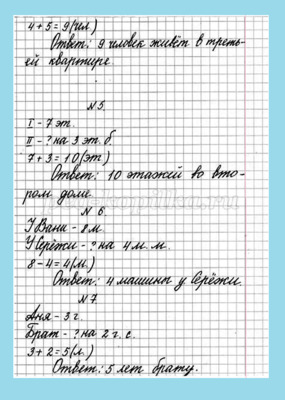 4+5=9(чел)
Ответ: 9 человек живёт в треть-
ей квартире.
№5
I - 7 эт.
II - ? на 3 эт. б.
7+3=10(эт)
Ответ: 10 этажей во вто-
ром доме.
№6
У Вани - 8 м.
У Серёжи - ? на 4 м. м.
8-4=4(м.)
Ответ: 4 машины у Серёжи.
№7
Аня - 3 г.
Брат - ? на 2 г. с.
3+2=5(л.)
Ответ: 5 лет брату.